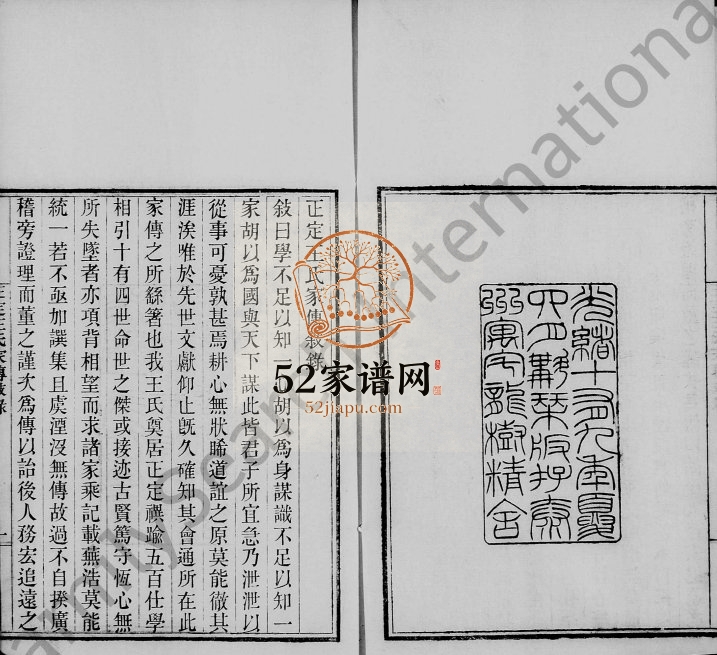 光緒十又九年夏
四月栞版存京
師寓宅龍樹精舍
正定王氏家傳敘錄
敍曰學不足以知一胡以爲身謀識不足以知一
家胡以爲國與天下謀此皆君子所宜急乃泄泄以
從事可憂孰甚焉耕心無狀晞道誼之原莫能徹其
涯涘唯於先世文獻仰止旣久確知其會通所在此
家傳之所繇箸也我王氏奠居正定禩踰五百仕學
相引十有四世命世之傑或接迹古賢篤守恆心無
所失墜者亦項背相望而求諸家乘記載蕪浩莫能
統一若不亟加譔集且虞湮沒無傳故過不自揆廣
稽旁證理而董之謹次爲傳以詒後人務宏追遠之
正定王氏家傳敘錄
一
52家谱网
52jiapu.com
FamilySearch International